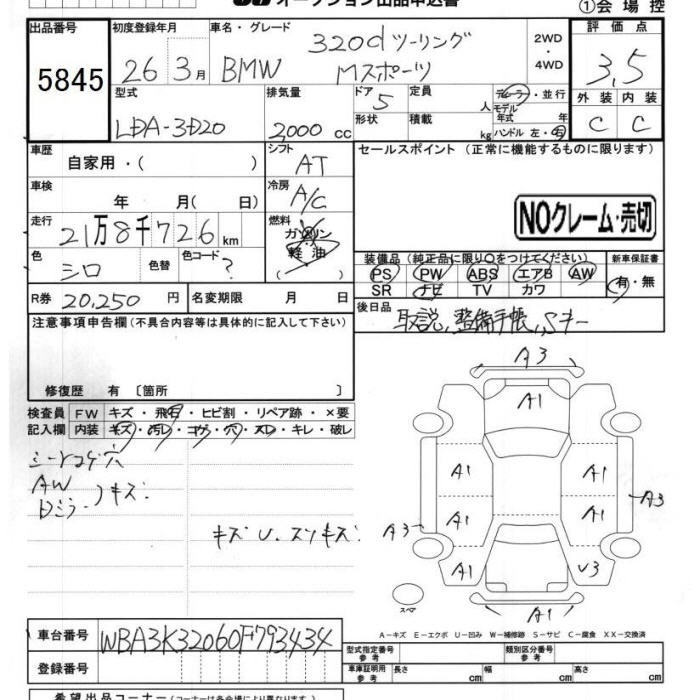 オークション出品申込書
①会場控
出品番号 初度登録年月 車名・グレード 評価点
5845 26 3月 BMW 320dツーリング Mスポーツ 2WD・4WD 3.5
型式 排気量 ドア 5 定員 人 ディーラー・並行 モデル年式 年 外装 内装
LDA-3D20 2,000 cc 形状 積載 kg ハンドル 左・右 C C
車歴 自家用・( ) シフト AT セールスポイント (正常に機能するものに限ります)
車検 年 月( 日) 冷房 A/C
NOクレーム・売切
走行 21万8千726km 燃料 ガソリン 軽油 ( )
色 シロ 色替 色コード ? 装備品 (純正品に限り○をつけてください) 新車保証書
PS PW ABS エアB AW 有・無
SR ナビ TV カワ
R券 20,250円 名変期限 月 日 後日品
取説,整備手帳,Sキー
注意事項申告欄(不具合内容等は具体的に記入して下さい)
修復歴 有 〔箇所 〕
検査員 FW キズ・飛石・ヒビ割・リペア跡・×要
記入欄 内装 キズ・汚レ・コゲ・穴・スレ・キレ・破レ
シートコゲ穴
AW
Dミラー キズ
キズ U.スリキズ
A3
A1
A1 A1
A3
A1 A1
A3
A1 U3
スペア
A1
A-キズ E-エクボ U-凹み W-補修跡 S-サビ C-腐食 XX-交換済
車台番号 WBA3K32060F793434
型式指定番号 参考 類別区分番号 参考
登録番号 車庫証明用 参考 長さ cm 幅 cm 高さ cm
希望出品コーナー(コーナーは各会場により異なります)